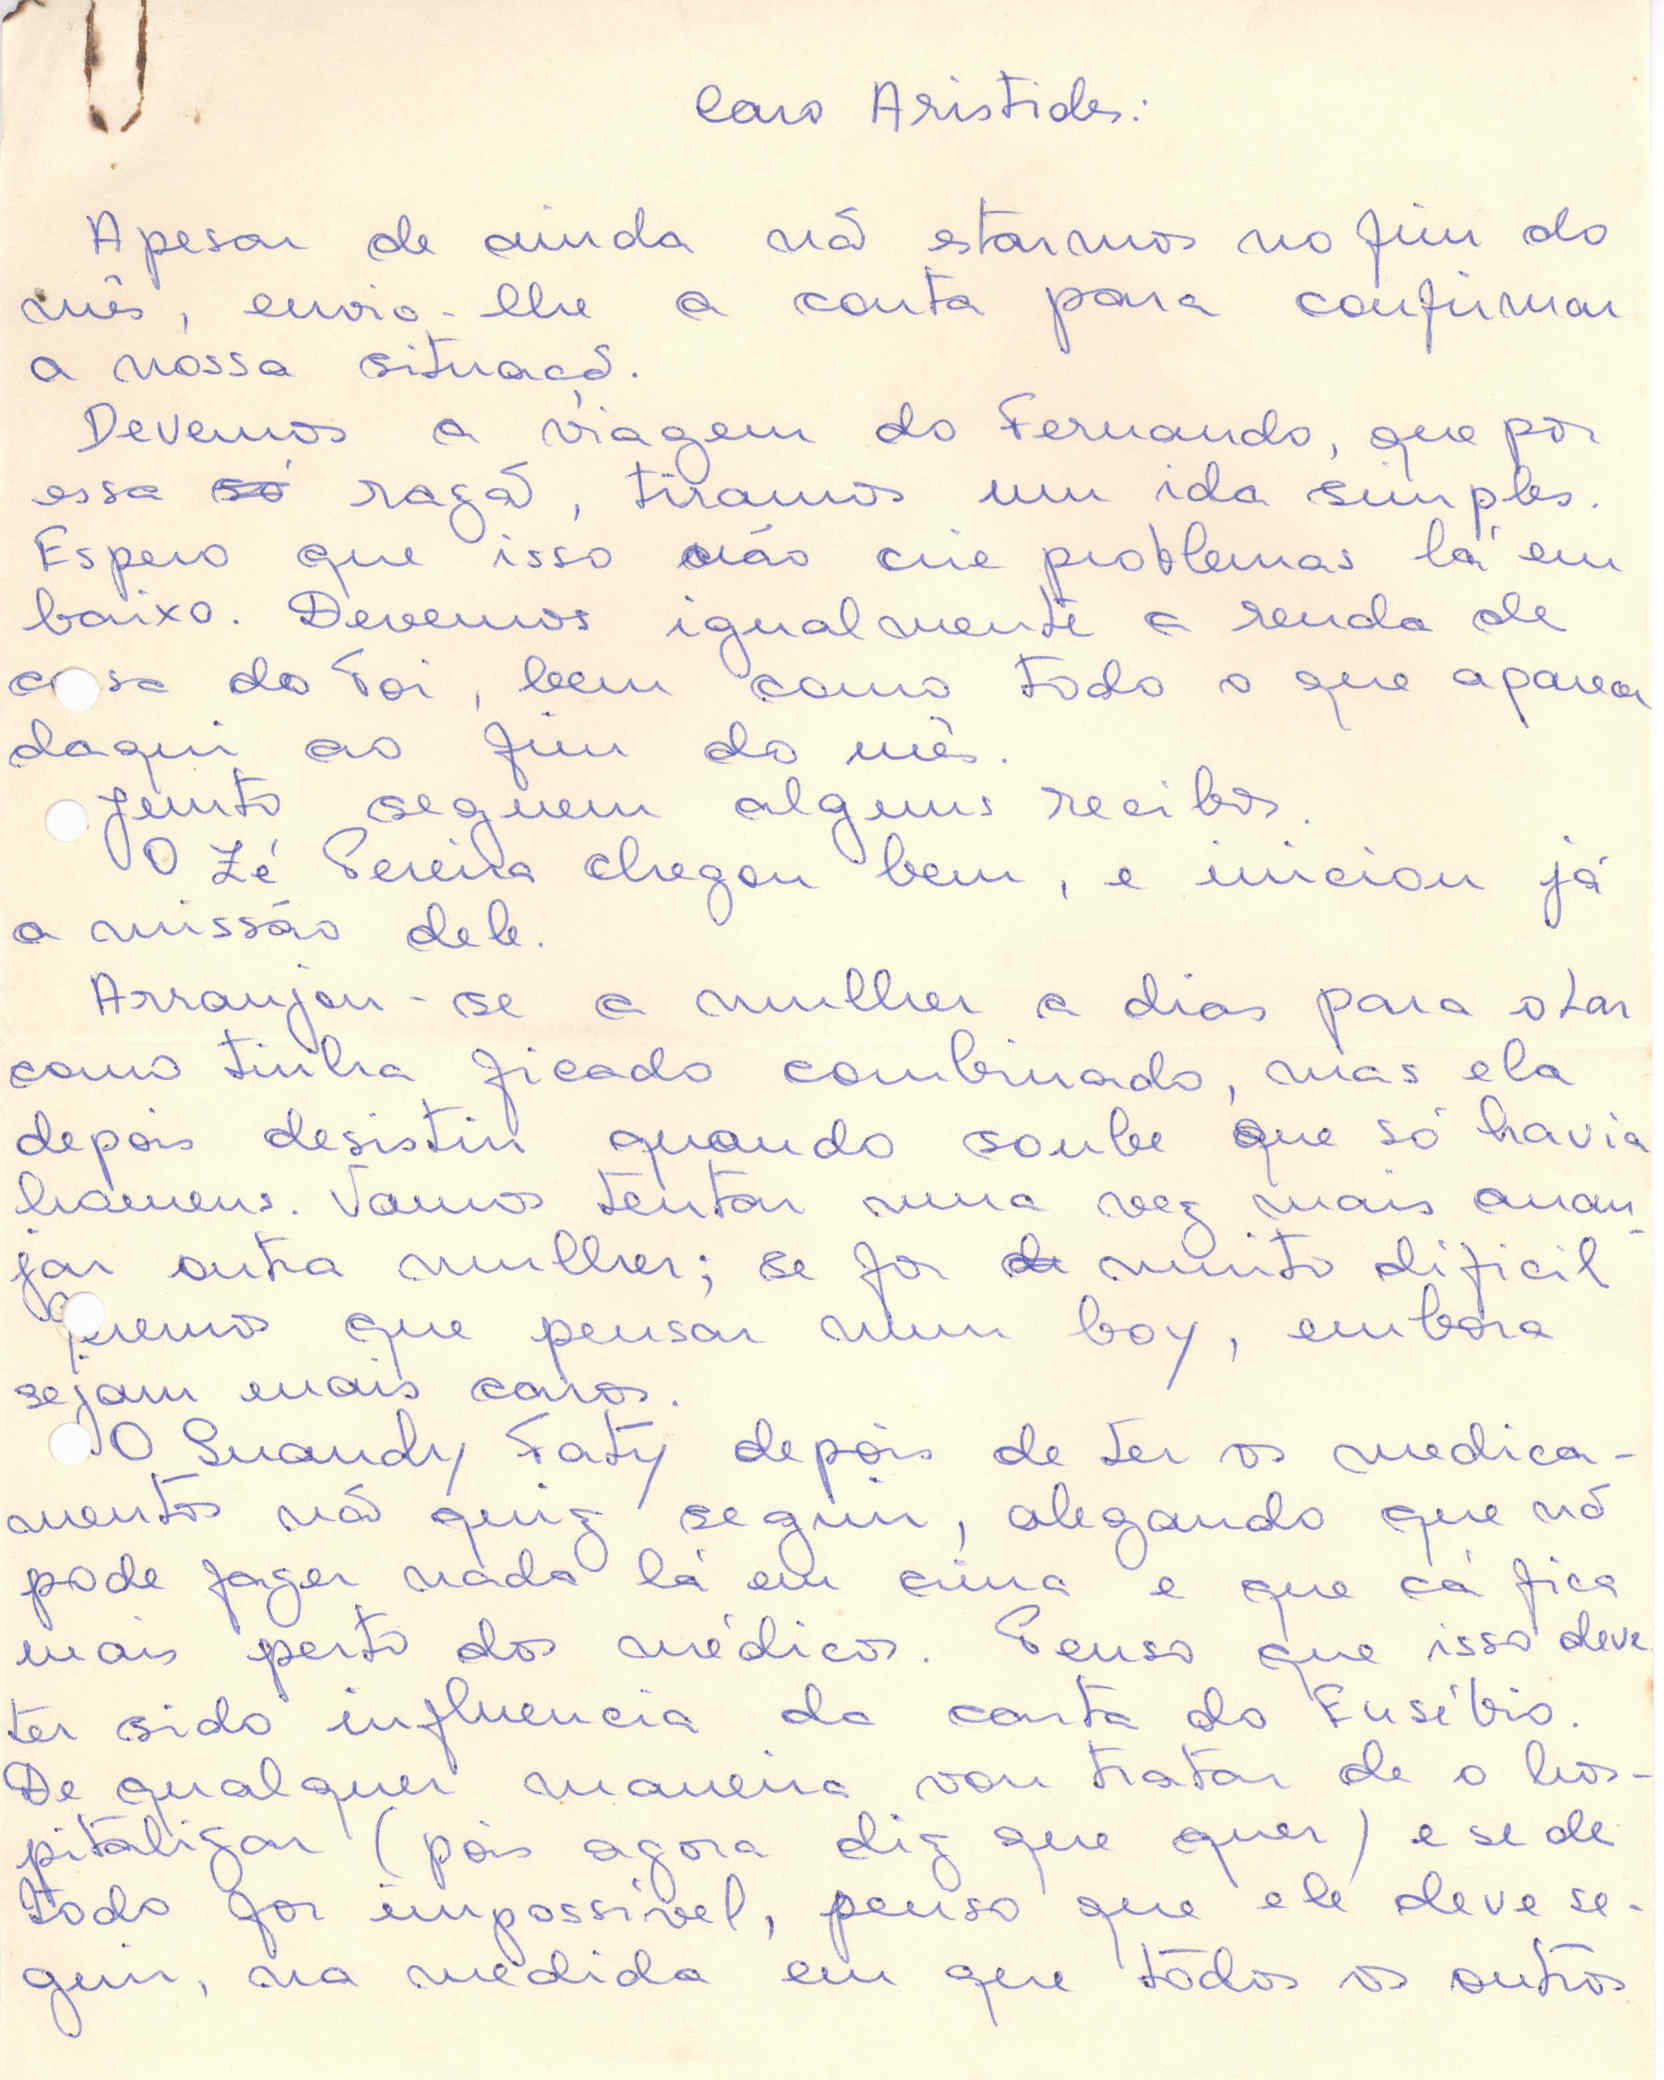 Caro Aristides:
Apesar de ainda nã estarmos no fim do
mês, envio-lhe a conta para confirmar
a nossa situaçã.
Devemos a viagem do Fernando, que por
essa só razã, tiramos um ida simples.
Espero que isso não crie problemas lá em
baixo. Devemos igualmente a renda de
casa do Foi, bem como todo o que apareça
daqui ao fim do mês.
Junto seguem alguns recibos.
O Zé Pereira chegou bem, e iniciou já
a missão dele.
Arranjou-se a mulher a dias para o Lar
como tinha ficado combinado, mas ela
depois desistiu quando soube que só havia
homens. Vamos tentar uma vez mais arran-
jar outra mulher; se for de muito dificil
temos que pensar num boy, embora
sejam mais caros.
O Suandy Faty depois de ter os medica-
mentos nã quiz seguir, alegando que nã
pode fazer nada lá em cima e que cá fica
mais perto dos médicos. Penso que isso deve
ter sido influencia da carta do Eusébio.
De qualquer maneira vou tratar de o hos-
pitalizar (pois agora diz que quer) e se de
todo for impossível, penso que ele deve se-
guir, na medida em que todos os outros